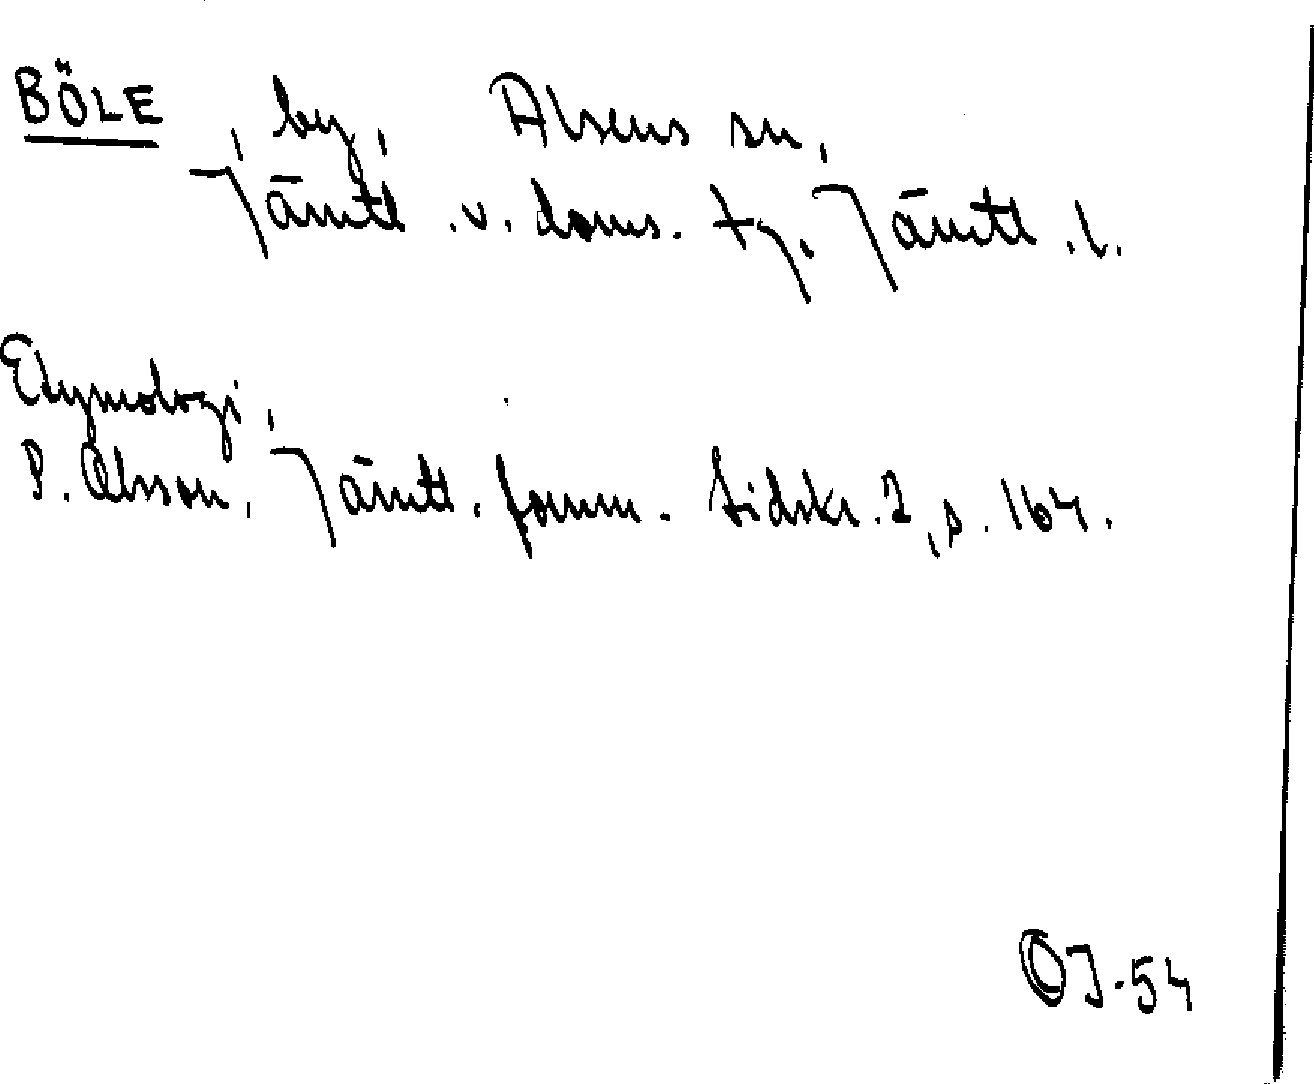 BÖLE, by, Alsens sn,
Jämtl. v. doms. tg, Jämtl. l.
Etymologi,
P. Olsson, Jämtl. fornm. tidskr. 2, s. 164.
OJ-54